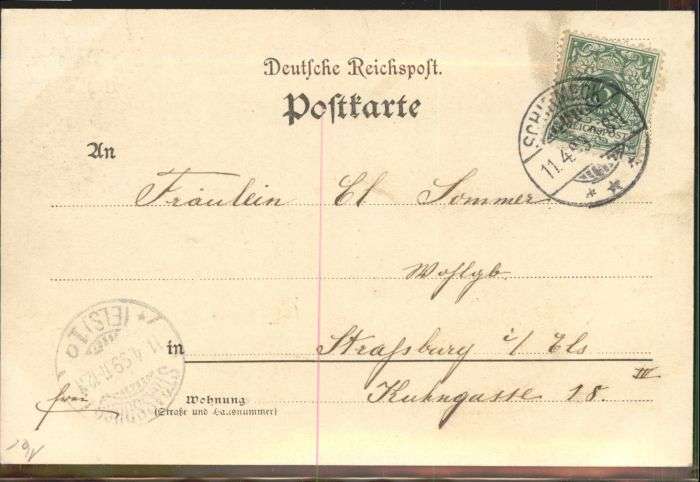 Deutsche Reichspost.
Postkarte
An
Fräulein El Sommer
Wohlgb.
in Straßburg i/ Els
Kuhngasse 18. IV
Wohnung
(Straße und Hausnummer)
frei
SCHIRMECK
11.4.99
REICHSPOST
STRASSBURG
(ELS) 1
11.4.99